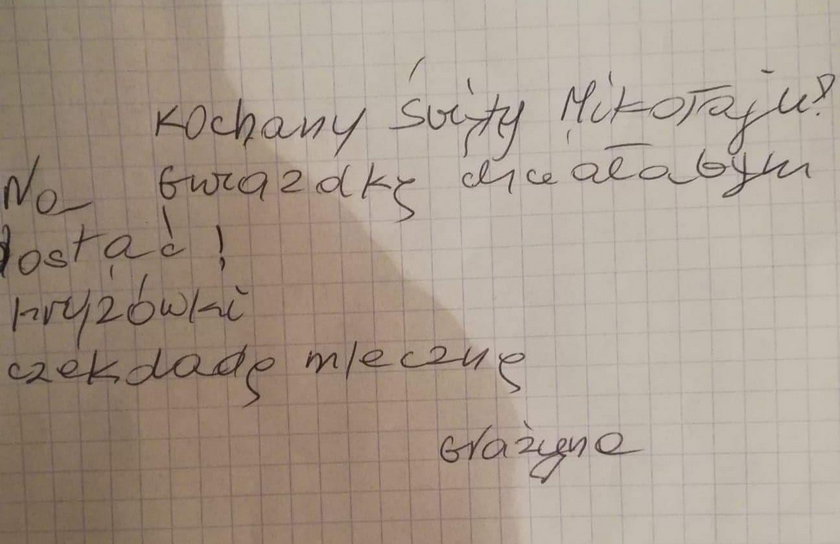 Kochany Święty Mikołaju!
Na Gwiazdkę chciałabym
dostać!
kryżówki
czekoladę mleczną
Grażyna